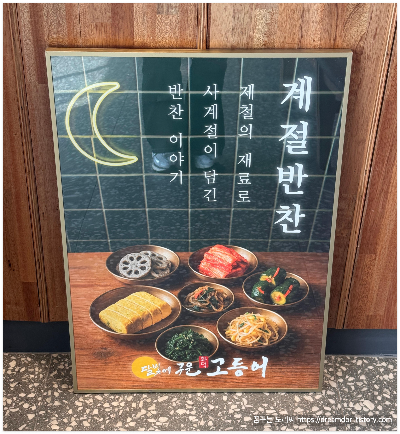 계절반찬
제철의 재료로
사계절이 담긴
반찬 이야기
구운 고등어
꿈꾸는 도래씨 https://dreamdar.tistory.com